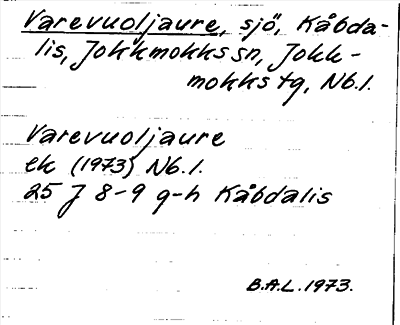 Varevuoljaure, sjö, Kåbda-
lis, Jokkmokks sn, Jokk-
mokks tg, Nb.l.
Varevuoljaure
ek (1973) Nb.l.
25 J 8-9 g-h Kåbdalis
B.A.L. 1973.